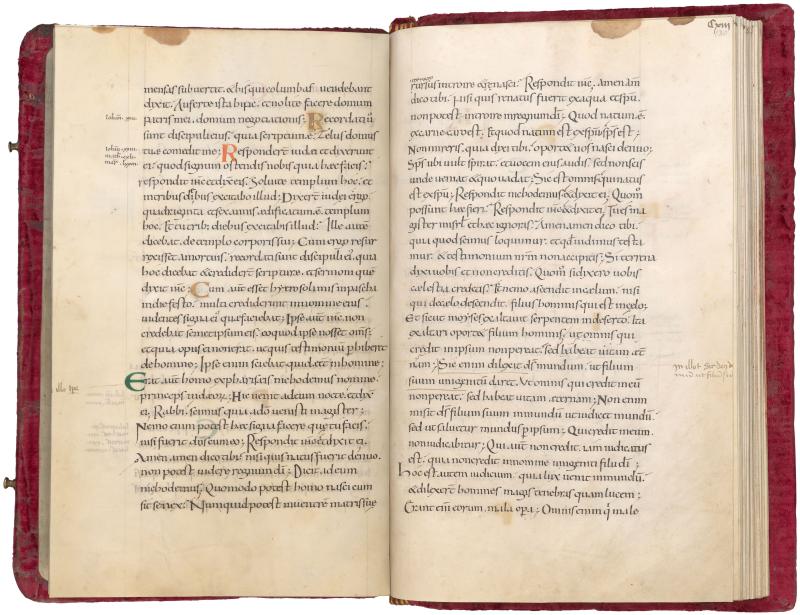 mensas subvertit. & his qui columbas vendebant
dixit. Auferte ista hinc. et nolite facere domum
patris mei. domum negotiationis; Recordati
sunt discipuli eius. quia scriptum e; Zelus domus
tuae comedit me; Responderunt iudei et dixerunt
ei. quod signum ostendis nobis quia haec facis;
respondit & dixit eis. Soluite templum hoc. et
in tribus diebus excitabo illud; Dixerunt iudei ergo
quadraginta et sex annis aedificatum e templum
hoc. Et tu trib; diebus excitabis illud; Ille aute
dicebat de templo corporis sui; Cum ergo resur
rexisset a mortuis. recordati sunt discipuli ei quia
hoc dicebat & crediderunt scripture. et sermoni que
dixit; Cum aut esset hyerosolimis in pascha
in die festo. multi crediderunt in nomine eius.
videntes signa ei que faciebat; Ipse aut non
credebat semetipsum eis. eo quod ipse nosset oms;
et quia opus ei non erat. ut quis testimonium phiberet
de homine; Ipse enim sciebat quid eet in homine;
Erat aut homo ex phariseis nichodemus nomine
princeps iudeorum; Hic venit ad eum nocte. & dixit
ei; Rabbi. scimus quia a do venisti magister;
Nemo enim potest haec signa facere que tu facis.
nisi fuerit ds cum eo; Respondit & dixit ei.
Amen amen dico tibi. nisi quis natus fuerit denuo.
non potest videre regnum di; Dicit ad eum
nichodemus; Quomodo potest homo nasci cum
sit senex; Numquid potest in ventrem matris sue
Cxiii
rursus introire & nasci; Respondit. amen am
dico tibi. nisi quis renatus fuerit ex aqua et spu.
non potest introire in regnum di; Quod natum e
ex carne. caro est; & quod natum est ex spu. sps est;
Non mireris. quia dixi tibi. oportet vos nasci denuo;
Sps ubi vult spirat. et vocem eius audis. sed non scis
unde veniat & quo vadat; Sic est omnis qui natus
est ex spu; Respondit nichodemus & dixit ei; Quom
possunt haec fieri; Respondit & dixit ei; Tu es ma
gister in isrl et haec ignoris; Amen amen dico tibi.
quia quod scimus loquimur. et qd vidimus testa
mur. & testimonium nrm non accipitis; Si terrena
dixi vobis et non creditis. Quom si dixero vobis
caelestia credetis; Et nemo ascendit in caelum. nisi
qui de caelo descendit. filius hominis qui est in celo;
Et sicut moyses exaltavit serpentem in deserto. Ita
exaltari oportet filium hominis. ut omnis qui
credit in ipsum non pereat. sed habeat vitam aet
nam; Sic enim dilexit ds mundum. ut filium
suum unigenitu daret. Ut omnis qui credit in eu
non pereat. sed habeat vitam aeternam; Non enim
misit ds filium suum in mundu ut iudicet mundu.
sed ut salvetur mundus p ipsum; Qui credit in eum
non iudicabitur; Qui aut non credit. iam iudicatus
est. quia non credit in nomine unigeniti filii di;
hoc est autem iudicium. quia lux venit in mundu.
& dilexerunt homines magis tenebras quam lucem;
Erant eni eorum mala opera; Omnis enim qui male